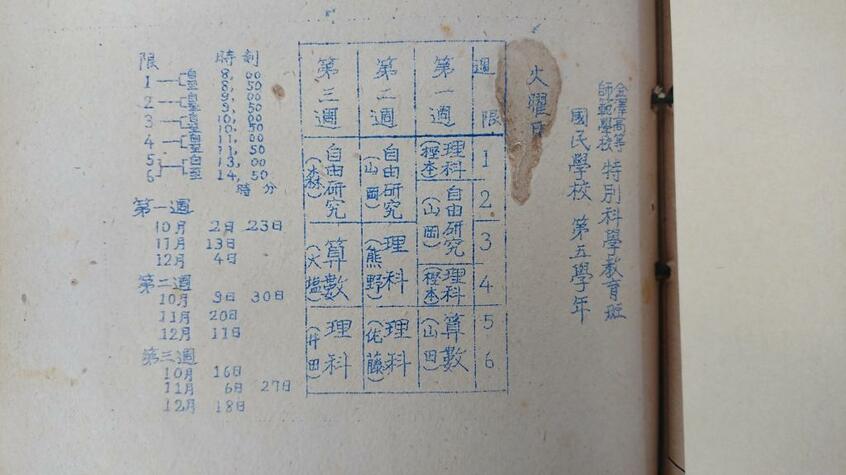 金澤高等師範學校 特別科學教育班
國民學校 第五學年
火曜日
週 限 1 2 3 4 5 6
第一週 理科 自由研究(山岡) 理科 算數(山田)
第二週 自由研究(山岡) 理科(熊野) 理科(佐藤)
第三週 自由研究(森) 算數(大塩) 理科(井田)
限 時刻
1 自 8,00
至 8,50
2 自 9,00
至 9,50
3 自 10,00
至 10,50
4 自 11,00
至 11,50
5 自 13,00
6 至 14,50
時 分
第一週
10月 2日 23日
11月 13日
12月 4日
第二週
10月 9日 30日
11月 20日
12月 11日
第三週
10月 16日
11月 6日 27日
12月 18日